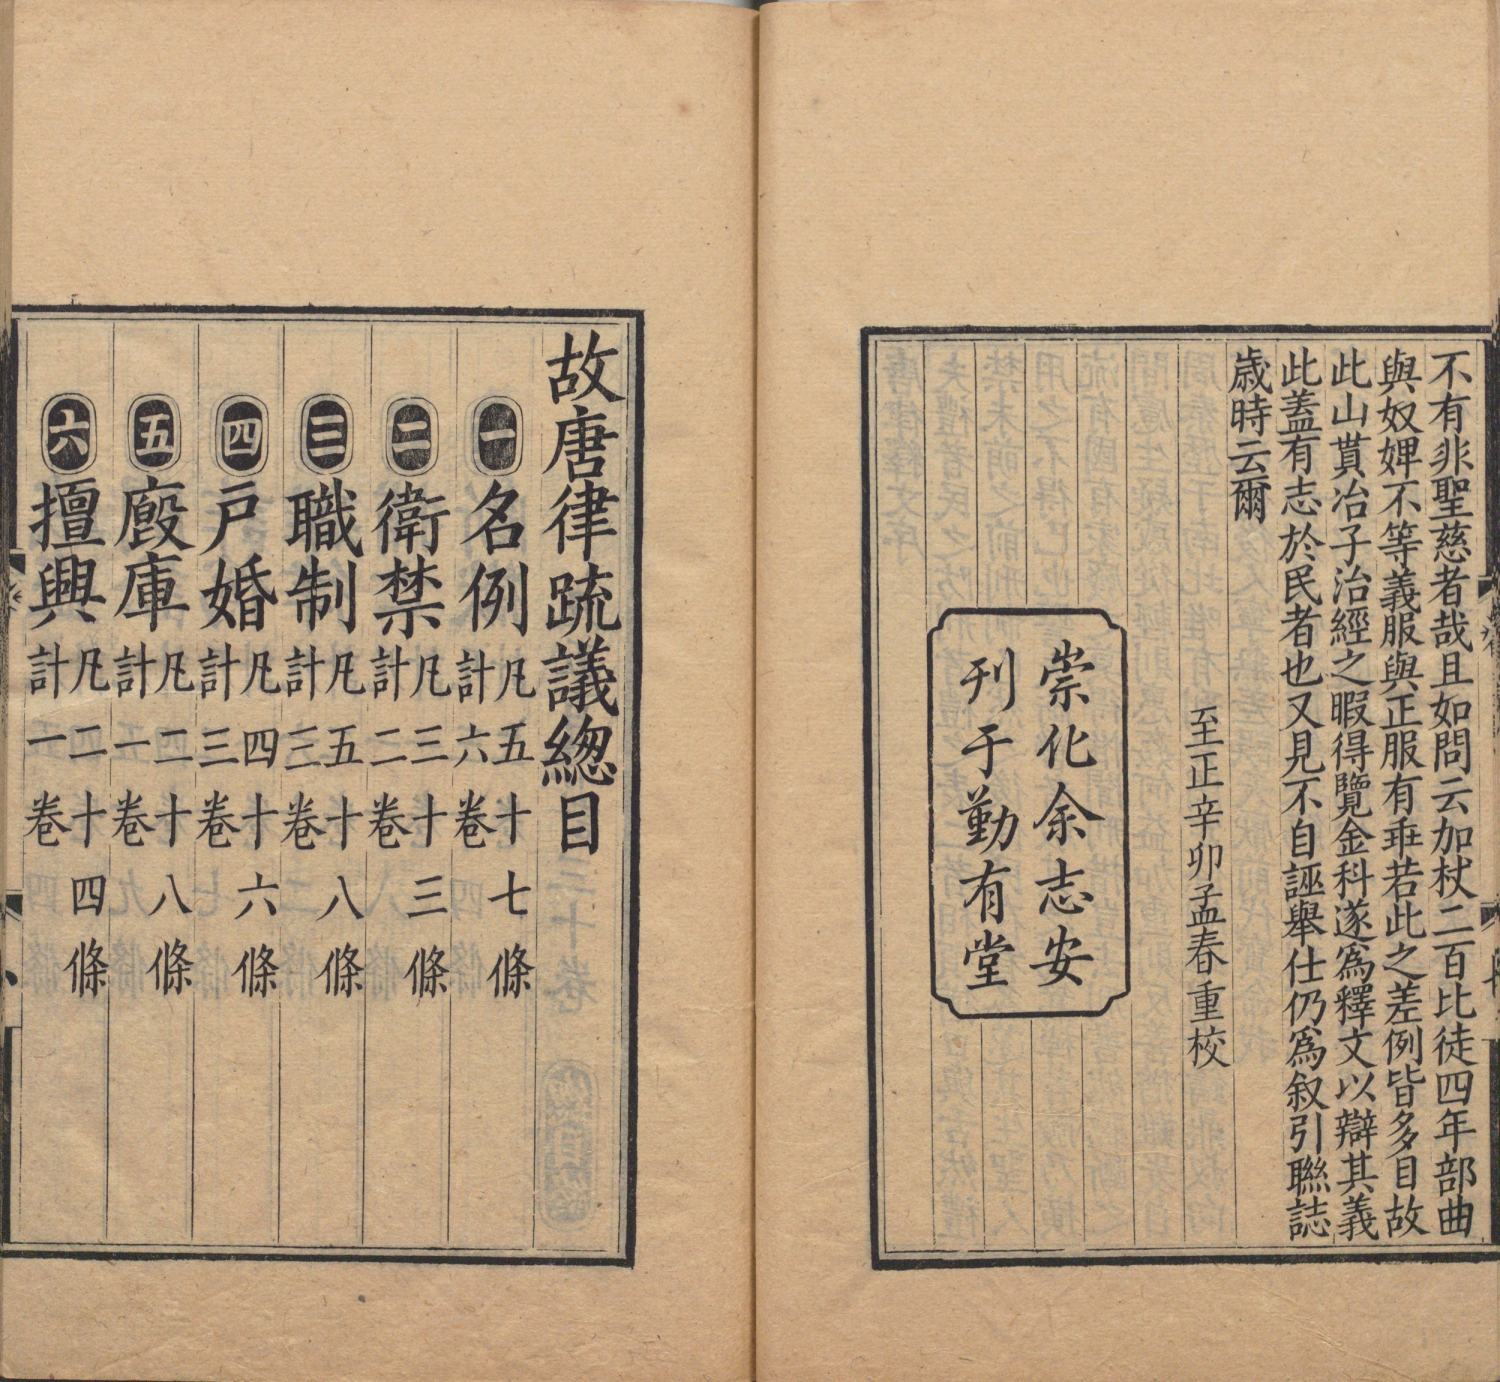 不有非聖慈者哉且如問云加杖二百比徒四年部曲
與奴婢不等義服與正服有垂若此之差例皆多目故
此山貰冶子治經之暇得覽金科遂爲釋文以辯其義
此蓋有志於民者也又見不自誣舉仕仍爲叙引聮誌
歲時云爾
至正辛卯孟春重校
崇化余志安
刊于勤有堂
故唐律疏議緫目
一名例凡五十七條計六卷
二衛禁凡三十三條計二卷
三職制凡五十八條計三卷
四戶婚凡四十六條計三卷
五廄庫凡二十八條計一卷
六擅興凡二十四條計一卷